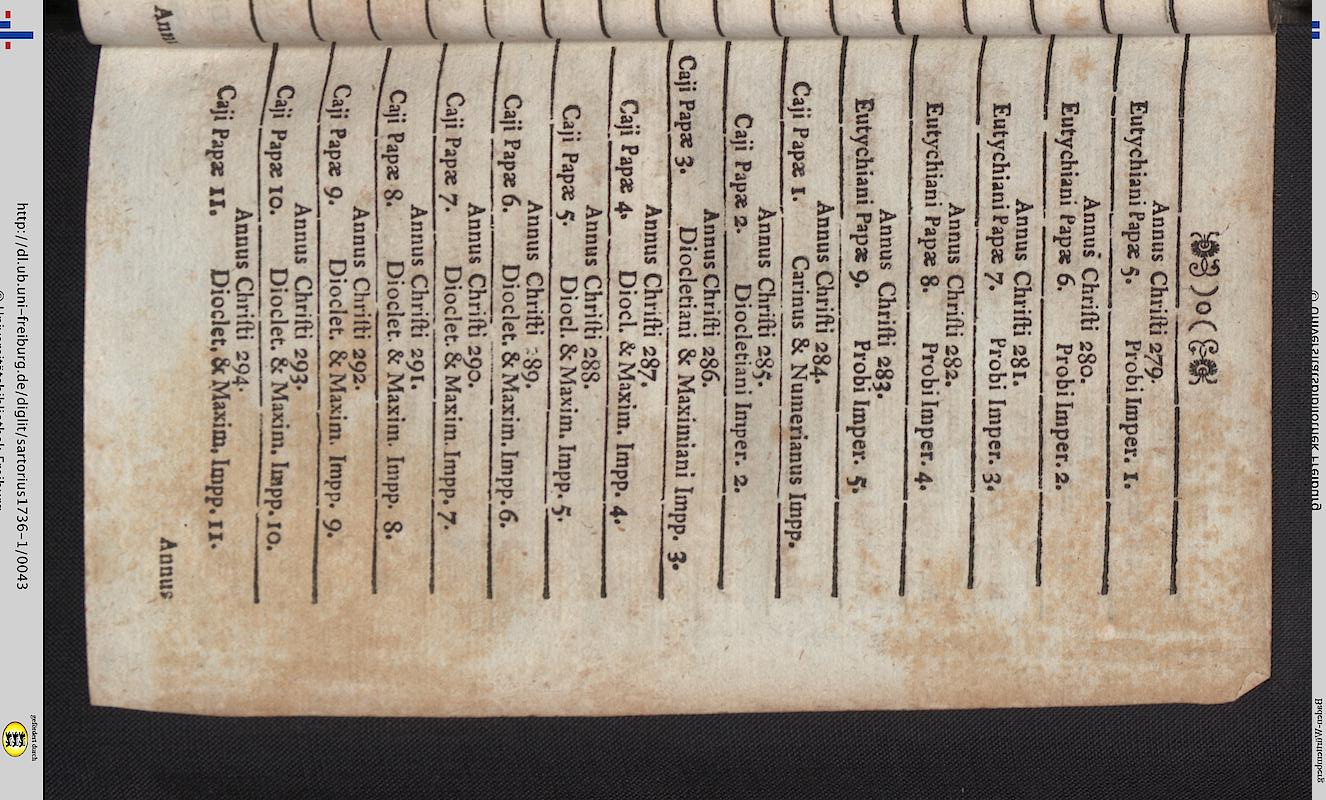 )o(
Annus Chriſti 279.
Eutychiani Papæ 5. Probi Imper. 1.
Annus Chriſti 280.
Eutychiani Papæ 6. Probi Imper. 2.
Annus Chriſti 281.
Eutychiani Papæ 7. Probi Imper. 3.
Annus Chriſti 282.
Eutychiani Papæ 8. Probi Imper. 4.
Annus Chriſti 283.
Eutychiani Papæ 9. Probi Imper. 5.
Annus Chriſti 284.
Caji Papæ 1. Carinus & Numerianus Impp.
Annus Chriſti 285.
Caji Papæ 2. Diocletiani Imper. 2.
Annus Chriſti 286.
Caji Papæ 3. Diocletiani & Maximiani Impp. 3.
Annus Chriſti 287
Caji Papæ 4. Diocl. & Maxim. Impp. 4.
Annus Chriſti 288.
Caji Papæ 5. Diocl. & Maxim. Impp. 5.
Annus Chriſti 289.
Caji Papæ 6. Dioclet. & Maxim. Impp. 6.
Annus Chriſti 290.
Caji Papæ 7. Dioclet. & Maxim. Impp. 7.
Annus Chriſti 291.
Caji Papæ 8. Dioclet. & Maxim. Impp. 8.
Annus Chriſti 292.
Caji Papæ 9. Dioclet. & Maxim. Impp. 9.
Annus Chriſti 293.
Caji Papæ 10. Dioclet. & Maxim. Impp. 10.
Annus Chriſti 294.
Caji Papæ 11. Dioclet. & Maxim. Impp. 11.
Annus
http://dl.ub.uni-freiburg.de/diglit/sartorius1736-1/0043
gefördert durch